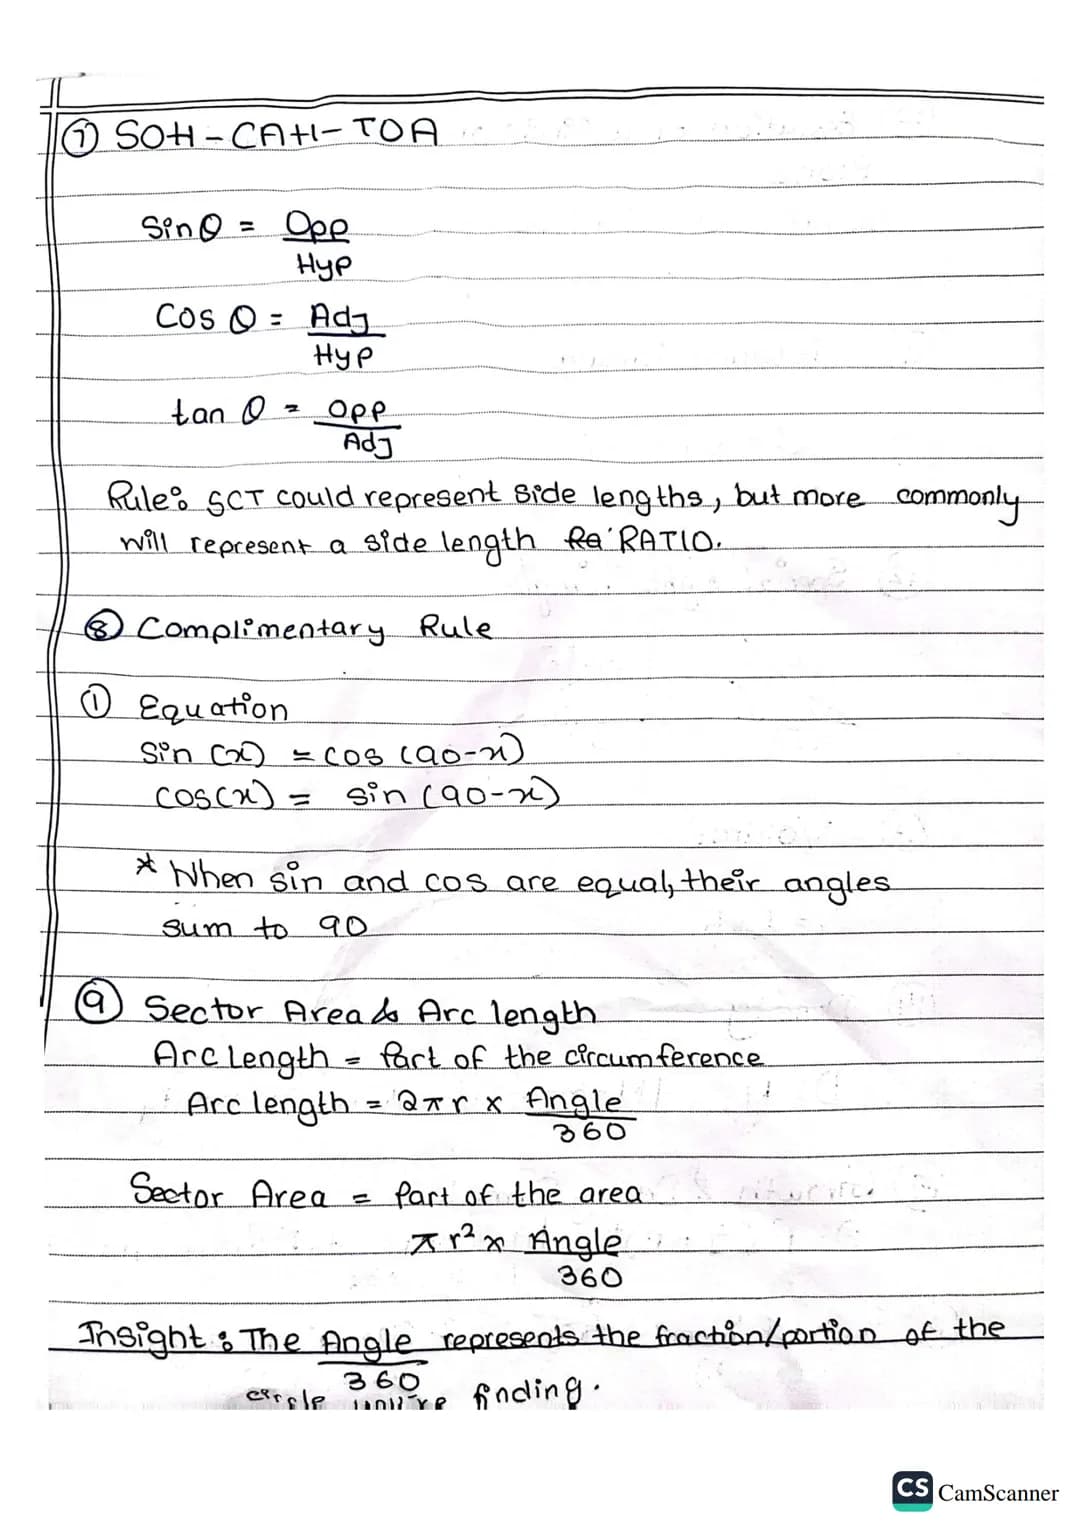 ⑦ SOH - CAH - TOA
Sin θ = Opp
Hyp
Cos θ = Adj
Hyp
tan θ = Opp
Adj
Rule: SCT could represent side lengths, but more commonly
will represent a side length Ra RATIO.
⑧ Complimentary Rule
① Equation
Sin (x) = cos (90-x)
cos(x) = sin (90-x)
* When sin and cos are equal, their angles
sum to 90
⑨ Sector Area & Arc length
Arc Length = Part of the circumference
Arc length = 2πr x Angle
360
Sector Area = Part of the area
πr² x Angle
360
Insight : The Angle represents the fraction/portion of the
360
circle finding.
CS CamScanner